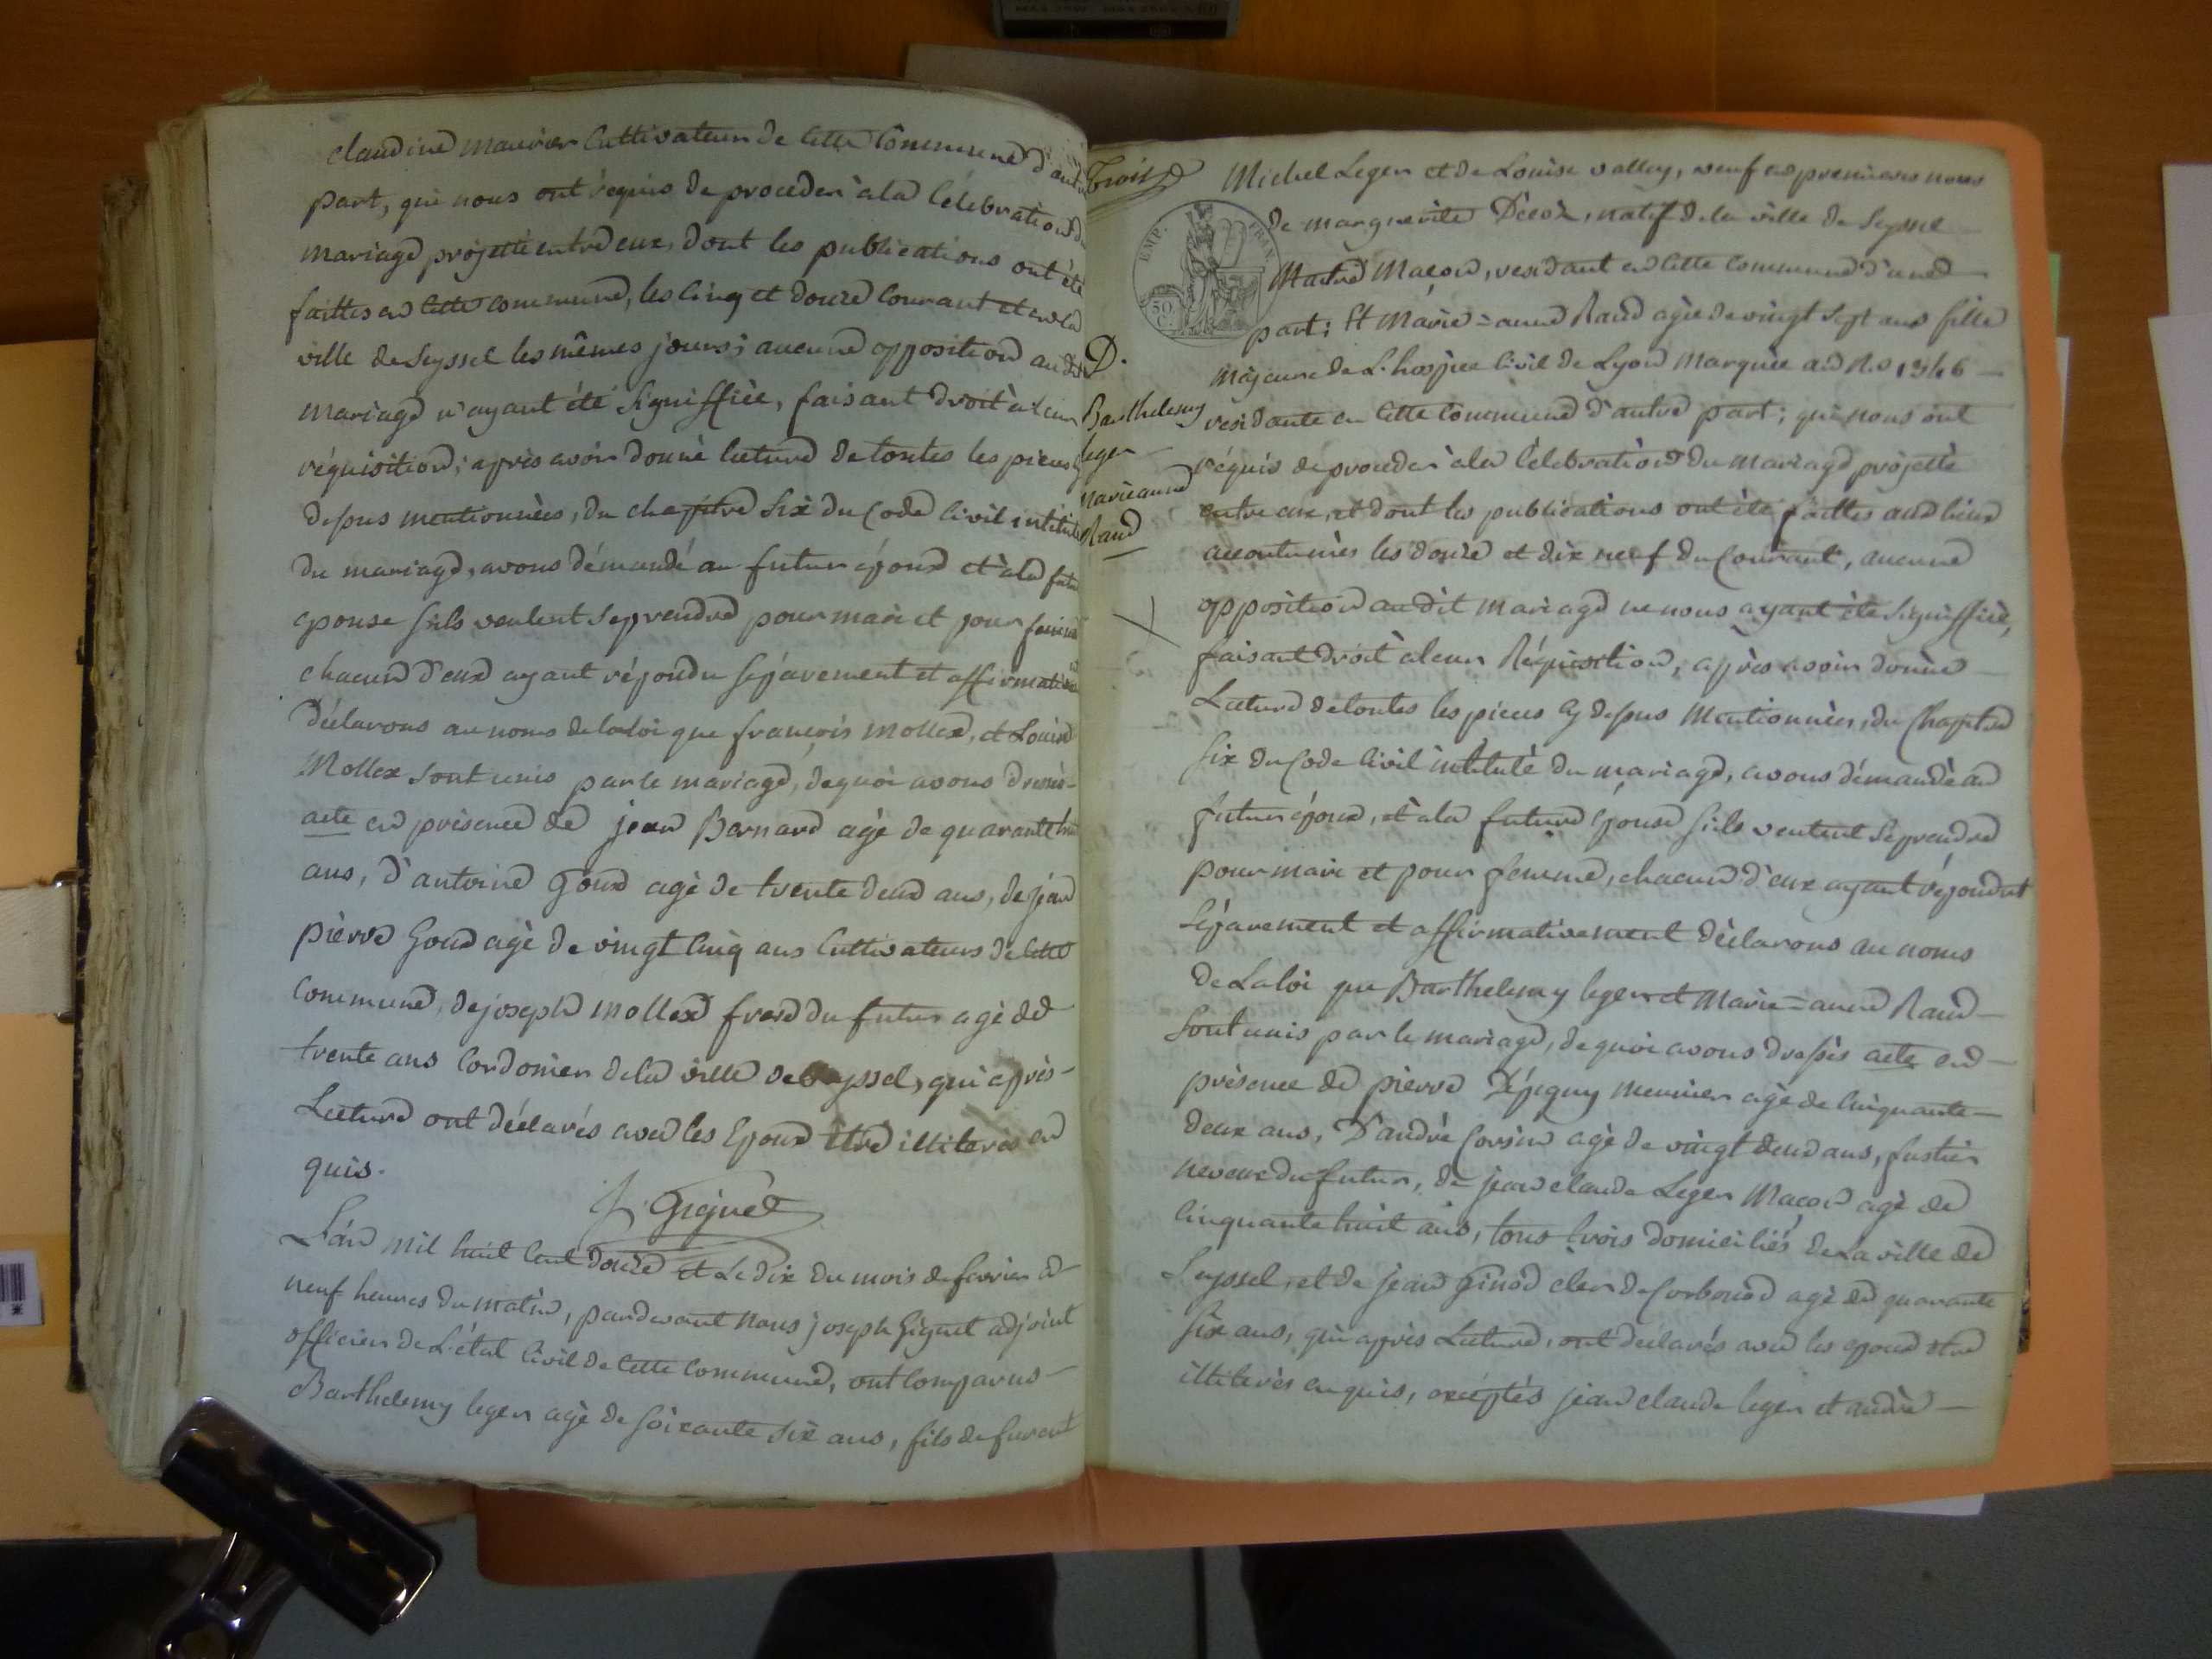 claudine maurier Cultivateur de cette Commune d'autre
part, qui nous ont réquis de proceder à la Célébration du
mariage projetté entre eux, dont les publications ont été
faittes en cette commune, les cinq et douze Courant et en la
ville de Seyssel les mêmes jours; aucune opposition audit
mariage n'ayant été Signiffiée, faisant droit à leur
réquisition; après avoir donné lecture de toutes les pieces cy
dessus mentionnées, du chapitre Six du Code Civil intitulé
du mariage, avons démandé au futur époux et à la future
epouse s'ils veulent se prendre pour mari et pour femme
chacun d'eux ayant répondu séparement et affirmativement
Déclarons au noms de la loi que françois mollex, et Louise
Mollex sont unis par le mariage, de quoi avons dressé
acte en présence de jean Bernard agé de quarante huit
ans, d'antoine Goux agé de trente deux ans, de jean
pièrre Goux agé de vingt Cinq ans Cultivateurs de cette
Commune, de joseph Mollex frere du futur agé de
trente ans Cordonier de la ville de Seyssel, qui après
Lecture ont déclarés avec les Epoux être illiterés en
quis.
J. Giguet
L'an mil huit Cent Douze et Le Dix du mois de fevrier à
neuf heures du matin, pardevant Nous joseph Giguet adjoint
officier de L'état Civil de Cette Commune, ont Comparus
Barthelemy leger agé de soixante Six ans, fils de feu
trois
D.
Barthelemy
leger
marie anne
Raud
EMP. FRAN.
50
C.
Michel Leger et de Louise valley, veuf en premieres noces
de marguerite, natif de la ville de Seyssel
Maitre Maçon, residant en cette commune d'une
part; Et Marie=anne Raud agée de vingt Sept ans fille
majeure de L'hospice Civil de Lyon Marquée au N.o 1346
residante en Cette Commune d'autre part; qui nous ont
réquis de proceder à la Célébration du mariage projetté
entre eux, et dont les publications ont été faittes aux lieux
accoutumés les douze et dix neuf du Courant, aucune
opposition audit mariage ne nous ayant été Signiffiée,
faisant droit à leur Réquisition, après avoir donné
Lecture de toutes les pieces cy dessus Mentionnées, du Chapitre
Six du Code Civil intitulé du mariage, avons démandé au
futur époux, et à la future Epouse s'ils veulent Se prendre
pour mari et pour femme, chacun d'eux ayant répondut
séparement et affirmativement Déclarons au noms
de La loi que Barthelemy leger et Marie=anne Raud
Sont unis par le mariage, de quoi avons dressés acte en
présence de pierre Dépigny meunier agé de Cinquante
deux ans, D'andré Corsin agé de vingt deux ans, fustier
neveux du futur, de jean claude Leger Maçon agé de
Cinquante huit ans, tous trois domiciliés de la ville de
Seyssel, et de jean Ginod clerc de Corbonod agé de quarante
Six ans, qui après Lecture, ont déclarés avec les epoux etre
illiterés enquis, exéptés jean claude leger et andré